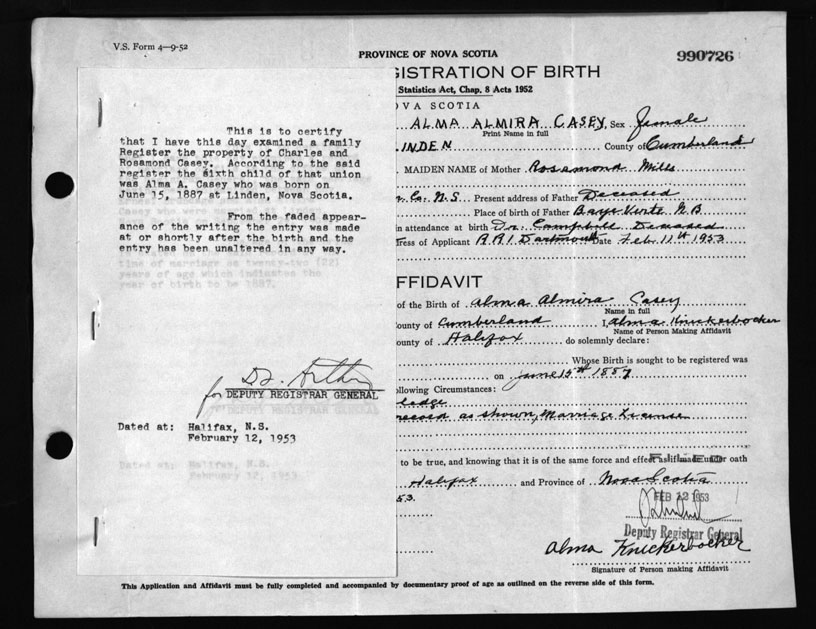 V.S. Form 4—9-52
PROVINCE OF NOVA SCOTIA
990726
GISTRATION OF BIRTH
Statistics Act, Chap. 8 Acts 1952
OVA SCOTIA
ALMA ALMIRA CASEY, Sex female
Print Name in full
INDEN County of Cumberland
MAIDEN NAME of Mother Rosamond Mills
Co. N.S Present address of Father Deceased
Place of birth of Father Baye Verte N.B
in attendance at birth Dr. Campbell Deceased
ress of Applicant R.R.1. Dartmouth Date Feb. 11th 1953
This is to certify
that I have this day examined a family
Register the property of Charles and
Rosamond Casey. According to the said
register the sixth child of that union
was Alma A. Casey who was born on
June 15, 1887 at Linden, Nova Scotia.
From the faded appear-
ance of the writing the entry was made
at or shortly after the birth and the
entry has been unaltered in any way.
time of marriage as twenty-two (22)
years of age which indicates the
year of birth to be 1887.
for
DEPUTY REGISTRAR GENERAL
DEPUTY REGISTRAR GENERAL
Dated at: Halifax, N.S.
February 12, 1953
Dated at: Halifax, N.S.
February 12, 1953
FFIDAVIT
of the Birth of Alma Almira Casey
Name in full
ounty of Cumberland I, Alma Knickerbocker
Name of Person Making Affidavit
ounty of Halifax do solemnly declare:
Whose Birth is sought to be registered was
on June 15th 1887
ollowing Circumstances:
ledge
record as shown, Marriage License
to be true, and knowing that it is of the same force and effect as if made under oath
Halifax and Province of Nova Scotia
53.
FILED
FEB 12 1953
Deputy Registrar General
Alma Knickerbocker
Signature of Person making Affidavit
This Application and Affidavit must be fully completed and accompanied by documentary proof of age as outlined on the reverse side of this form.